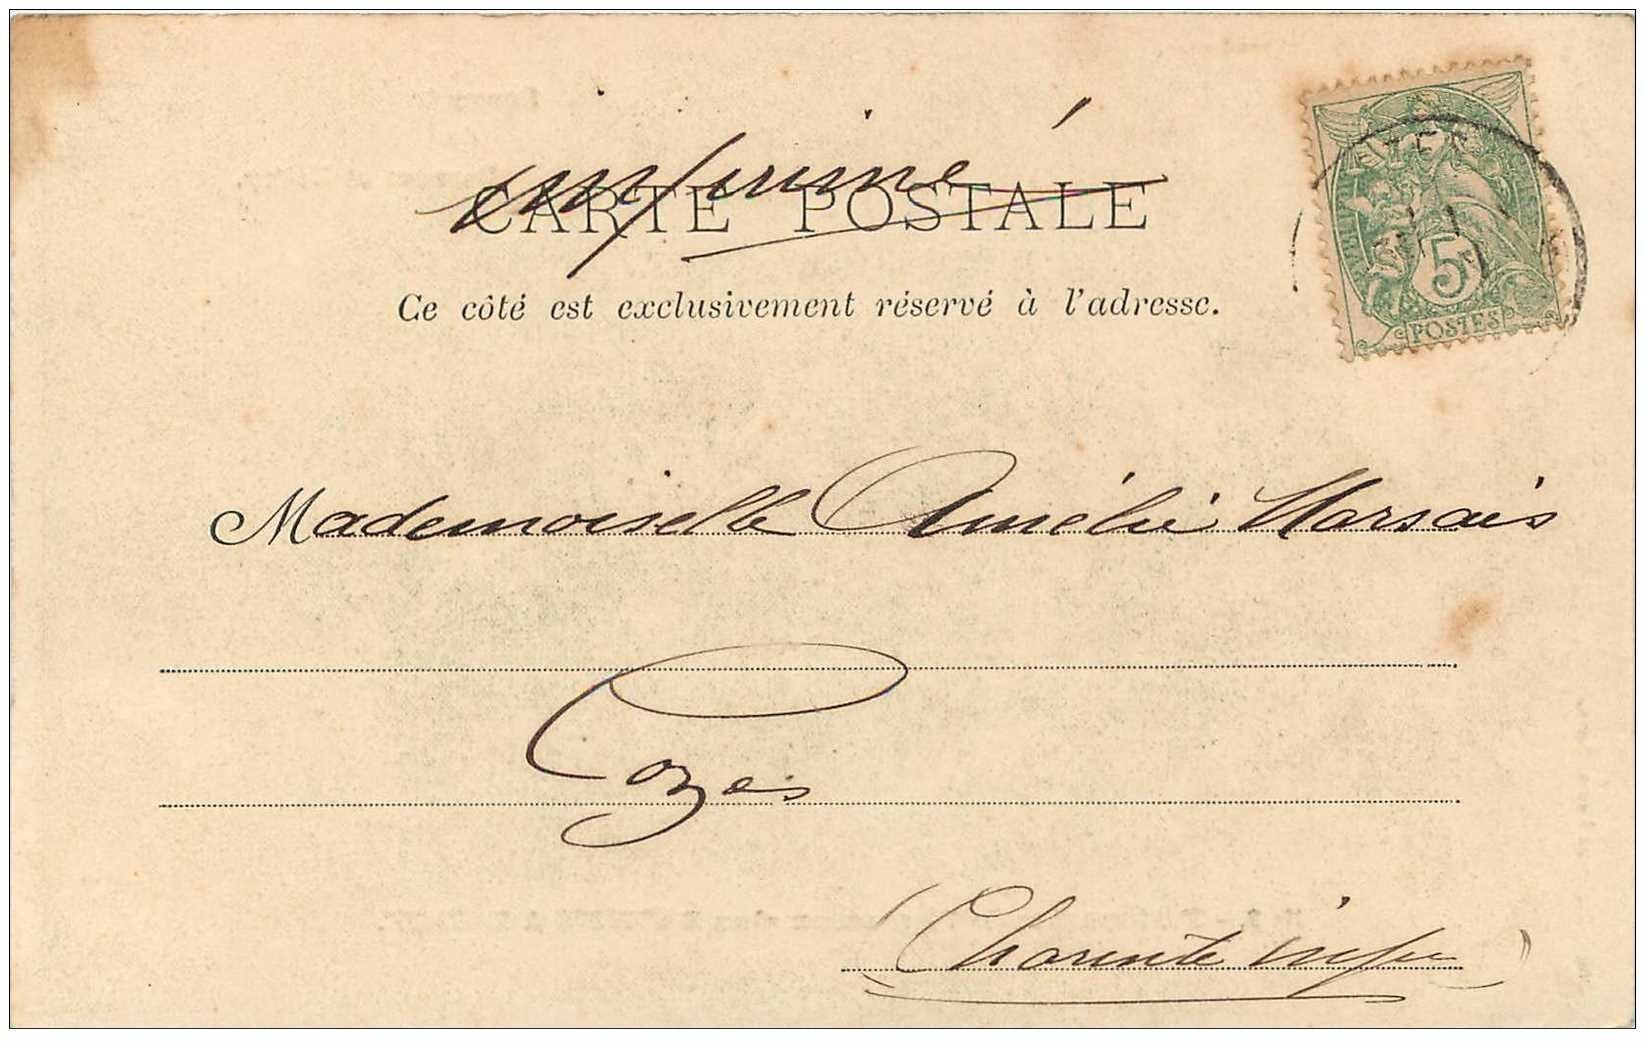 imprimé
CARTE POSTALE
Ce côté est exclusivement réservé à l'adresse.
5
POSTES
Mademoiselle Amélie Marsais
Cozes
(Charente infre)